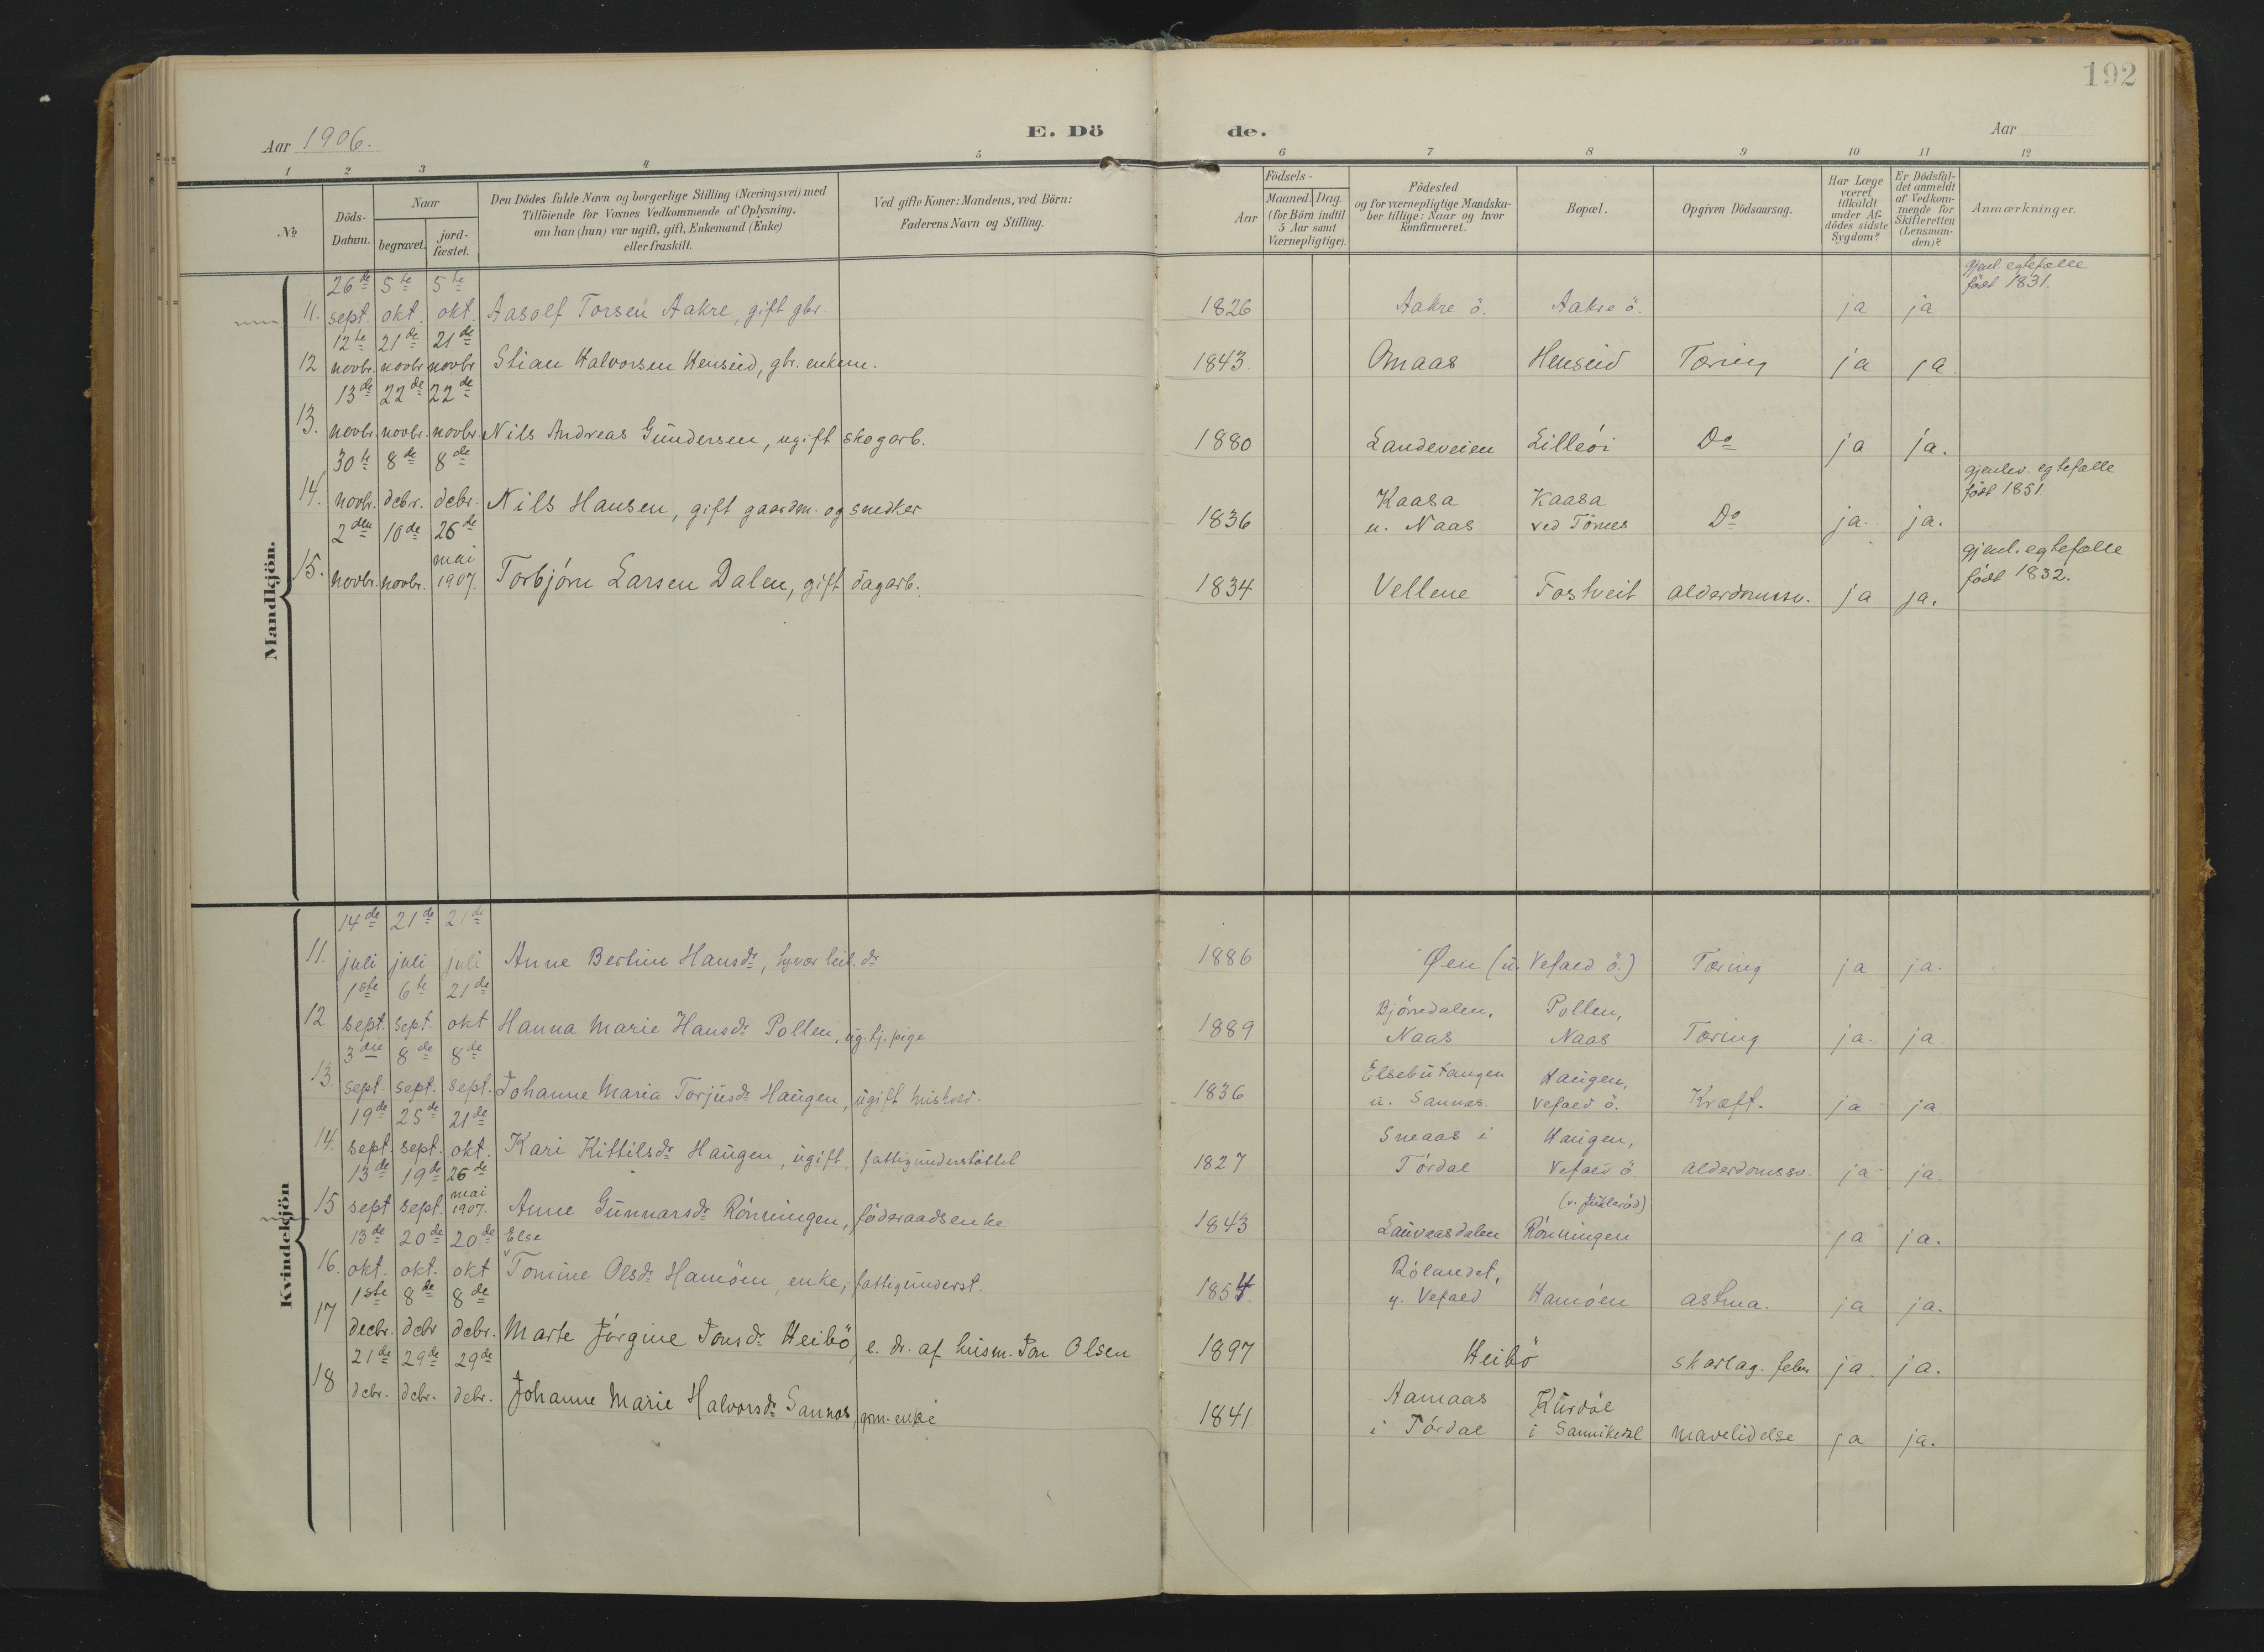 192
Aar 1906.
E. Dö de.
Aar
1 2 3 4 5 6 7 8 9 10 11 12
No
Döds-Datum.
Naar
begravet.
jord-fæstet.
Den Dödes fulde Navn og borgerlige Stilling (Næringsvei) med
Tilföiende for Voxnes Vedkommende af Oplysning,
om han (hun) var ugift, gift, Enkemand (Enke)
eller fraskilt.
Ved gifte Koner: Mandens, ved Börn:
Faderens Navn og Stilling.
Födsels-
Aar
Maaned. Dag.
(for Börn indtil
5 Aar samt
Værnepligtige).
Födested
og for værnepligtige Mandska-
ber tillige: Naar og hvor
konfirmeret.
Bopæl.
Opgiven Dödsaarsag.
Har Læge
været
tilkaldt
under Af-
dödes sidste
Sygdom?
Er Dödsfal-
det anmeldt
af Vedkom-
mende for
Skifteretten
(Lensman-
den)?
Anmærkninger.
Mandkjön.
26de 5te 5te gjenl. egtefælle
født 1831.
11. sept. okt. okt. Aasolf Torsen Aakre, gift gbr. 1826 Aakre ö. Aakre ö. ja ja
12te 21de 21de
12 novbr. novbr novbr Stian Halvorsen Henseid, gbr. enkem. 1843. Omaas Henseid Tæring ja ja
13de 22de 22de
13. novbr. novbr. novbr. Nils Andreas Gundersen, ugift skogarb. 1880 Landeveien Lilleöi Do ja ja.
30te 8de 8de gjenlev. egtefælle
født 1851.
14. novbr. debr. debr. Nils Hansen, gift gaardm. og snedker 1836 Kaasa u. Naas Kaasa ved Törnes Do ja. ja.
2den 10de 26de gjenl. egtefælle
født 1832.
15. novbr. novbr. mai 1907. Torbjörn Larsen Dalen, gift dagarb. 1834 Vellene Fostveit alderdomssv. ja ja.
Kvindekjön
14de 21de 21de
11. juli juli juli Anne Bertine Hansdr, dr 1886 Øen (u. Vefald ö.) Tæring ja ja.
1ste 6te 21de
12 sept. sept. okt Hanna Marie Hansdr Pollen, ug. tj. pige 1889 Bjönndalen, Naas Pollen, Naas Tæring ja. ja
3die 8de 8de
13. sept. sept. sept. Johanne Maria Torjusdr Haugen, ugift huskvd. 1836 Elsebutangen u. Sannæs. Haugen, Vefald ö. Kræft. ja ja
19de 25de 21de
14. sept. sept. okt. Kari Kittilsdr Haugen, ugift, fattigunderstöttet 1827 Sneaas i Tördal Haugen, Vefald ö alderdomssv. ja ja.
13de 19de 26de
15 sept sept. mai 1907. Anne Gunnarsdr Rönningen, föderaadsenke 1843 Lauvaasdalen Rönningen ja ja.
13de 20de 20de Else
16. okt. okt. okt Tomine Olsdr Hamöen, enke, fattigunderst. 1854. Rölandet, y. Vefald Hamöen astma. ja ja.
1ste 8de 8de
17 decbr. debr debr. Marte Jörgine Jonsdr Heibö, e. dr. af husm. Jon Olsen 1897 Heibö skarlag. feber ja. ja.
21de 29de 29de
18 debr. debr. debr. Johanne Marie Halvorsdr Sannæs, grm. enke 1841 Aamaas i Tördal Kurdöl i Sannikedal mavelidelse ja ja.